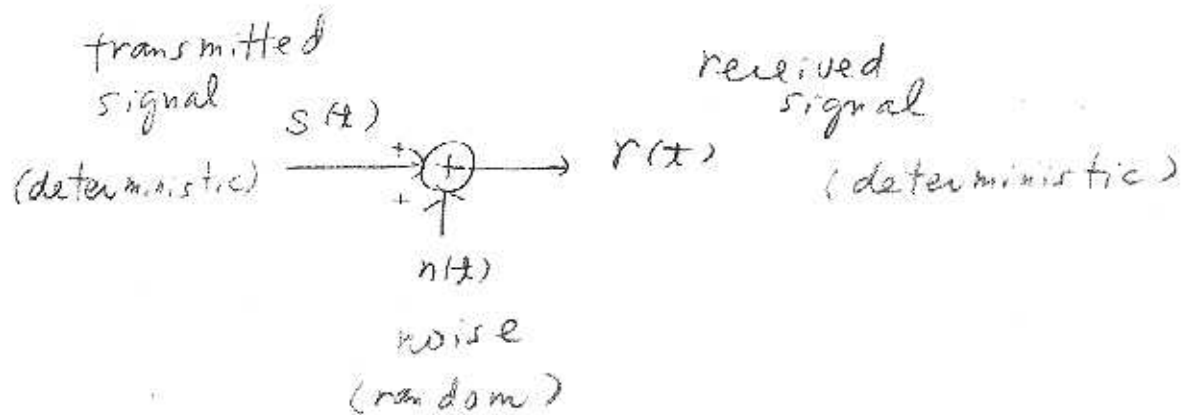 transmitted
signal
s(t)
(deterministic)
+
+
+
r(t)
received
signal
(deterministic)
n(t)
noise
(random)